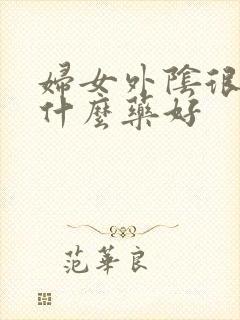 婦女外陰很
什麼藥好
范華良